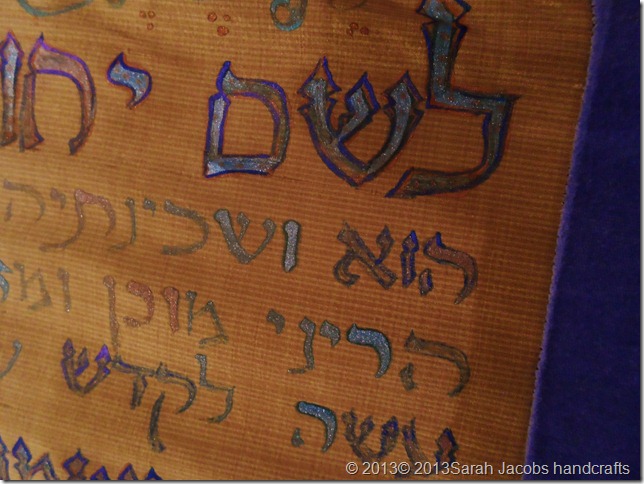 לשם יחו
הוא ושכינתיה
הריני מוכן ומז
עשה לקדש
© 2013© 2013Sarah Jacobs handcrafts